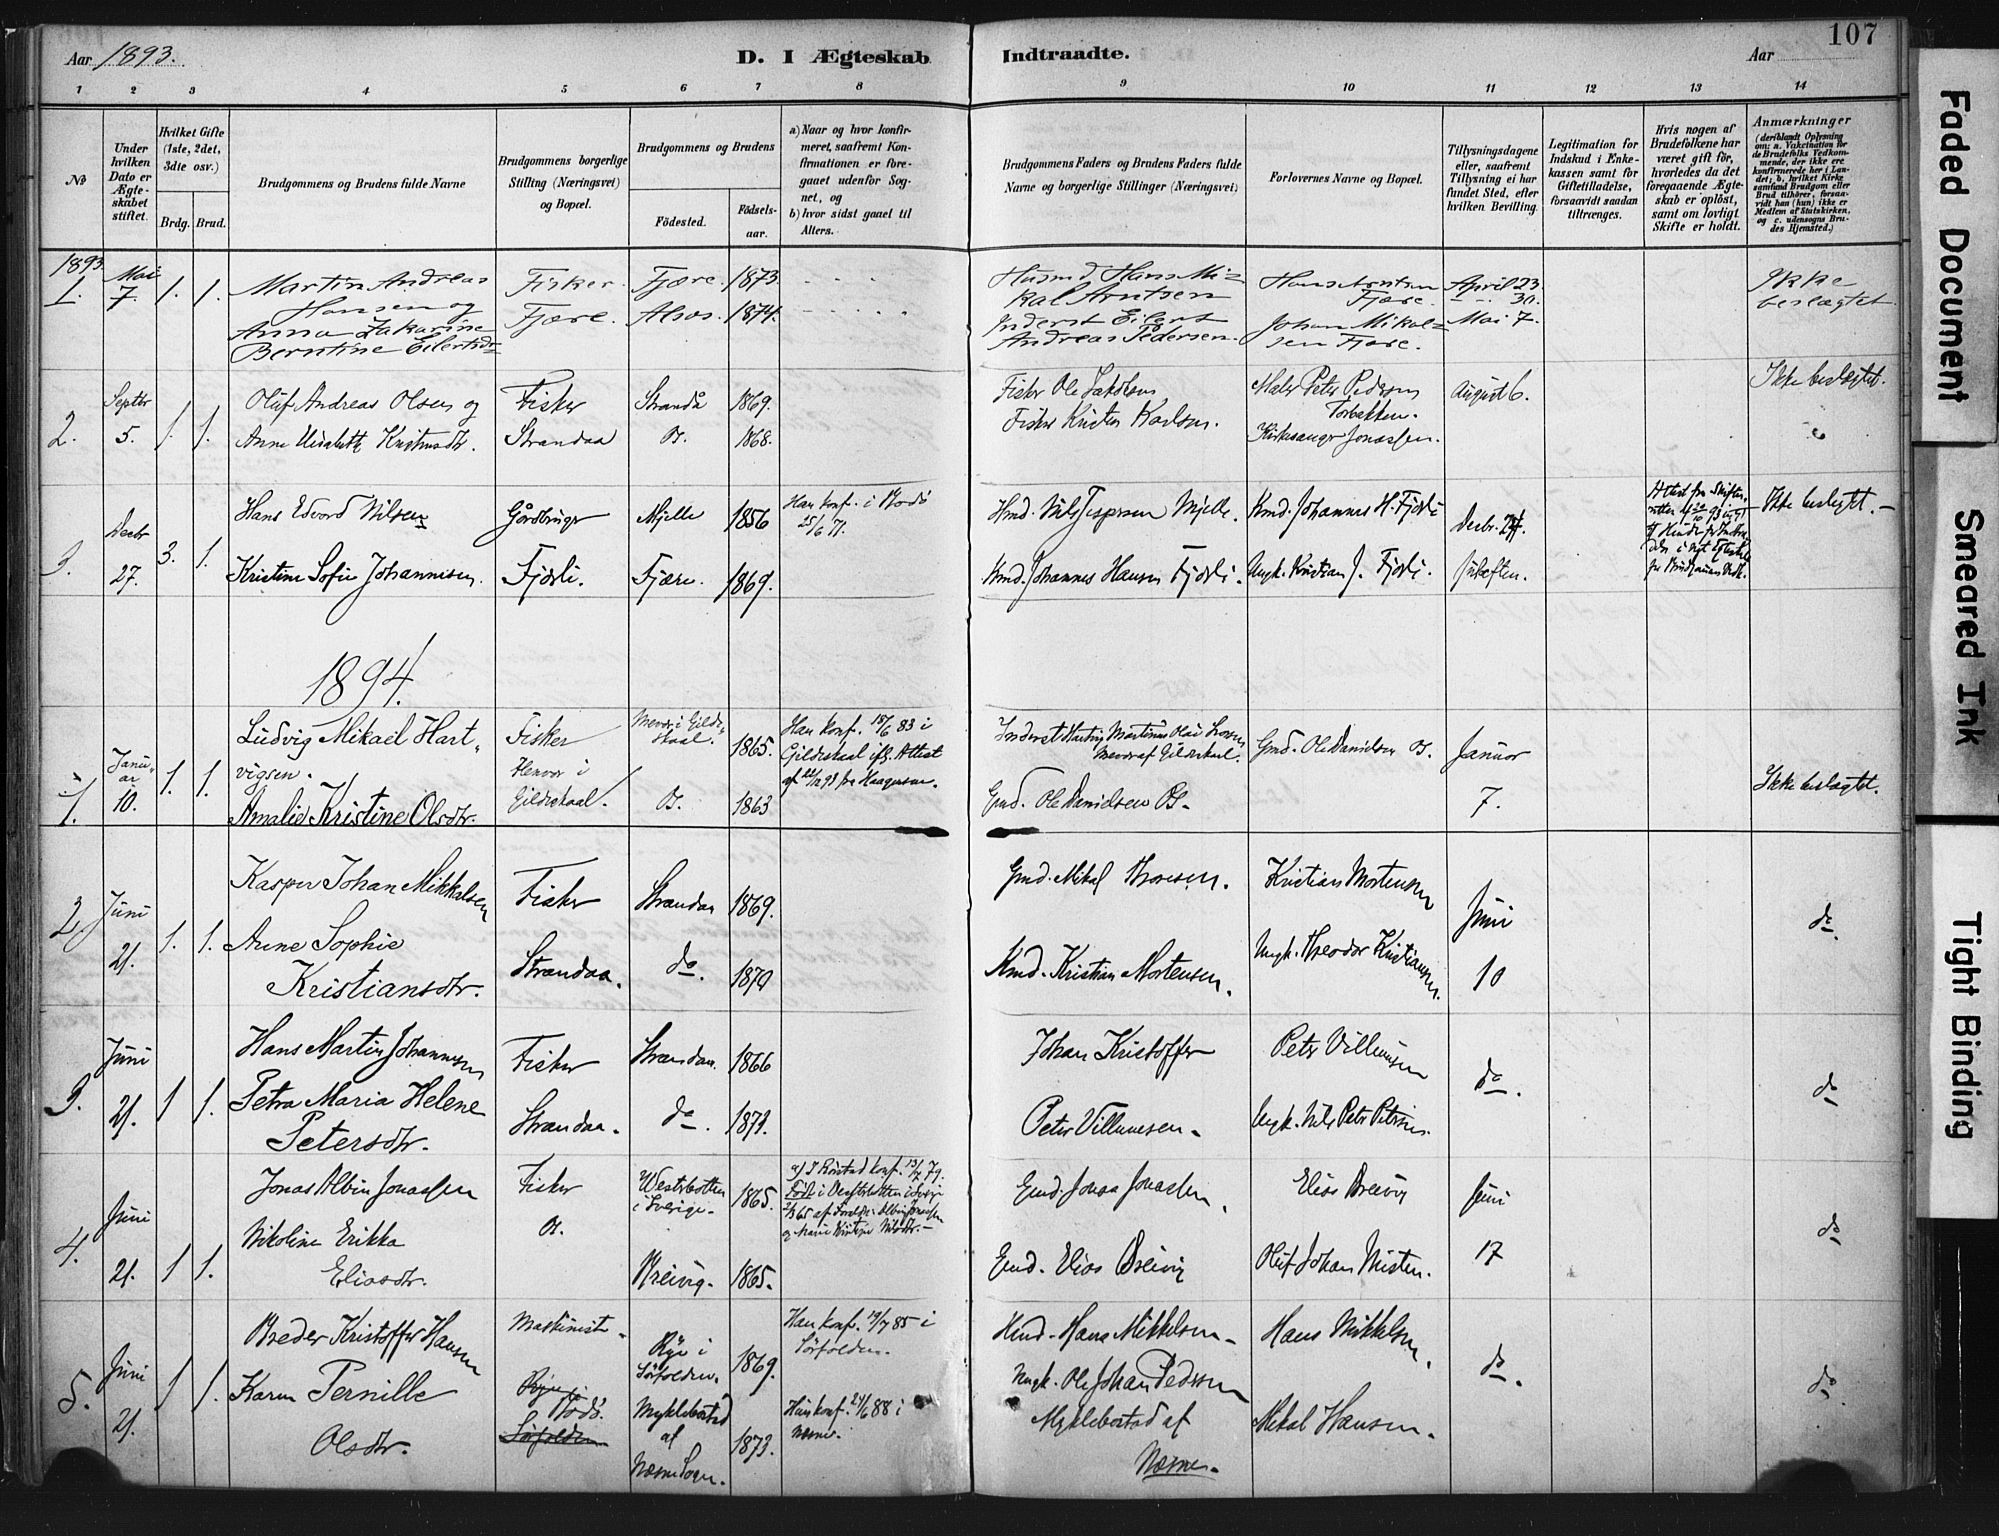 107
Aar 1893.
D. I Ægteskab Indtraadte.
Aar
1 2 3 4 5 6 7 8 9 10 11 12 13 14
No
Under hvilken Dato er Ægteskabet stiftet.
Hvilket Gifte (1ste, 2det, 3die osv.)
Brdg. Brud.
Brudgommens og Brudens fulde Navne
Brudgommens borgerlige Stilling (Næringsvei) og Bopæl.
Brudgommens og Brudens
Fødested.
Fødselsaar.
a) Naar og hvor konfirmeret, saafremt Konfirmationen er foregaaet udenfor Sognet, og
b) hvor sidst gaaet til Alters.
Brudgommens Faders og Brudens Faders fulde Navne og borgerlige Stillinger (Næringsvei)
Forlovernes Navne og Bopæl.
Tillysningsdagene eller, saafremt Tillysning ei har fundet Sted, efter hvilken Bevilling.
Legitimation for Indskud i Enkekassen samt for Giftetilladelse, forsaavidt saadan tiltrænges.
Hvis nogen af Brudefolkene har været gift før, hvorledes da det foregaaende Ægteskab er opløst, samt om lovligt Skifte er holdt.
Anmærkninger
(deriblandt Oplysning om: a. Vakcination for de Brudefolks Vedkommende, der ikke ere konfirmerede her i Landet; b. hvilket Kirkesamfund Brudgom eller Brud tilhører, forsaavidt han (hun) ikke er Medlem af Statskirken, og c. udensogns Brudes Hjemsted.)
1893.
1. Mai 7. 1. 1.
Martin Andreas Hansen og
Anna Zakarine Berntine Eilertsdr
Fisker. Fjære.
Fjære. 1873.
Alsos. 1874.
Husmd Hans Mikal Arntsen
Inderst Eilert Andreas Pedersen.
Hans Arntsen Fjære.
Johan Mikalsen Fjære.
April 23
" 30.
Mai 7.
Ikke beslægtet
2. Septbr 5. 1. 1.
Oluf Andreas Olsen og
Fisker Strandaa
Strandå 1869.
1868.
Fisker Ole Jakobsen
Fisker Kristen Karlsen.
Maler Peter Pedersen
Kirkesanger Jonassen.
August 6.
Ikke beslægtet.
3. Decbr 27. 3. 1.
Hans Edvard Nilsen
Kristine Sofie Johannesen.
Gårdbruger Fjærli.
Mjelle 1856
Fjære. 1869.
Han konf. i Bodø 25/6 71.
Nils Jespersen Mjelle.
Johannes Hansen Fjærli.
Johannes H. Fjærli
Ungk. Kristian J. Fjærli.
Decbr. 24.
Juleaften.
Ikke beslægtet.
1894.
1. Januar 10. 1. 1.
Ludvig Mikael Hartvigsen.
Amalie Kristine Olsdtr.
Fisker
Gildeskaal.
1865.
1863
Han konf. 18/6 83 i
Gildeskaal ifl. Attest
Gmd. Ole Danielsen Os.
Gmd. Ole Danielsen Os.
Januar 7.
Ikke beslægtet.
2. Juni 21. 1. 1.
Kasper Johan Mikkalsen
Anne Sophie Kristiansdtr.
Fisker Strandaa.
Strandaa 1869.
do. 1870
Gmd. Mikal Thoresen.
Kristian Mortensen.
Kristian Mortensen
Ungk. Theodor Kristiansen.
Juni 10
do.
3. Juni 21. 1 1.
Hans Martin Johannesen
Petra Maria Helene Petersdtr.
Fisker Strandaa.
Strandaa. 1866
do. 1871.
Johan Kristoffer
Peter Villumsen.
Peter Villumsen
Ungk. Nils Peter Petersen.
do.
do
4. Juni 21. 1 1.
Jonas Albin Jonassen
Nikoline Erikka Eliasdtr.
Fisker
Os.
Westerbotten i Sverige. 1865.
Breivig. 1865.
Jonas Jonassen
Elias Breivig
Elias Breivig
Oluf Johan Misten.
Juni 17
do
5. Juni 21. 1 1.
Preder Kristoffer Hansen
Karen Pernille Olsdtr.
Maskinist
Bodø.
Sørfolden
Rye i Sørfolden. 1869.
Myklebostad af Næsne Sogn. 1873.
Han konf. 19/7 85 i Sørfolden.
Hun konf. 24/6 88 i Næsne.
Hans Mikkelsen
Ungk. Ole Johan Pedersen
Myklebostad af Næsne.
Hans Mikkelsen.
Mikal Hansen.
do.
do
Faded Document
Smeared Ink
Tight Binding